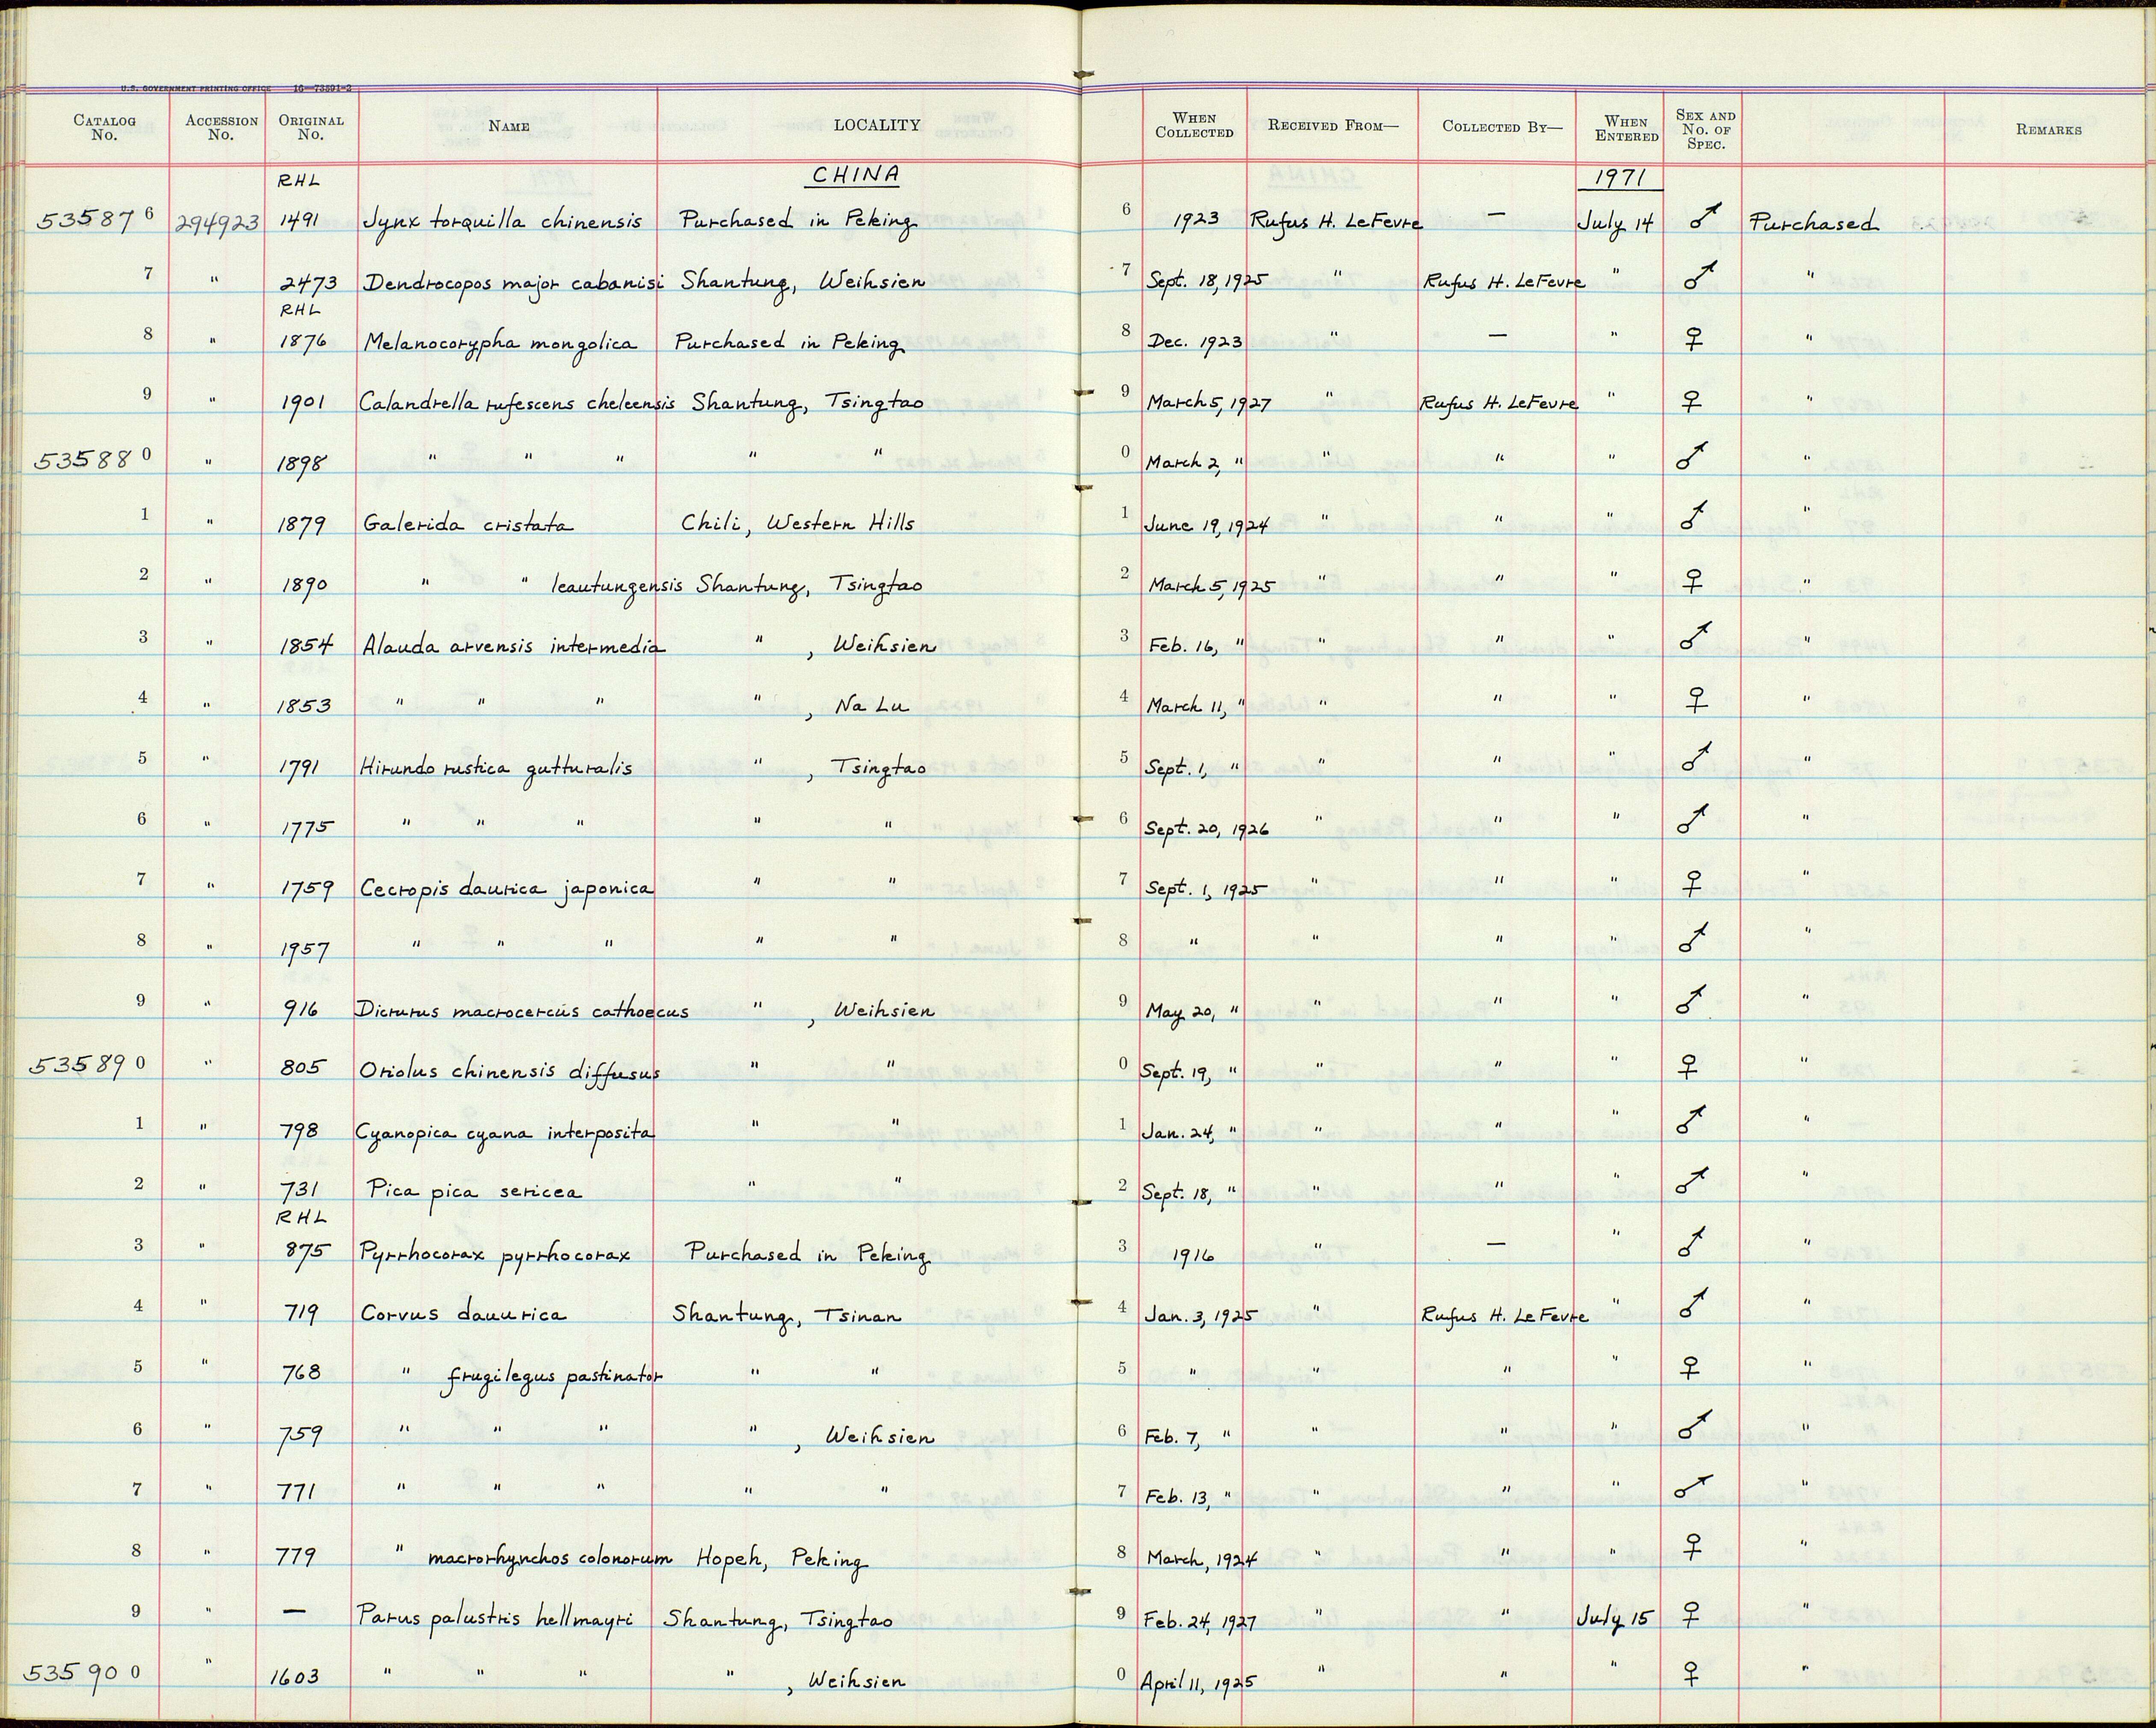 U.S. GOVERNMENT PRINTING OFFICE 16—73591-2
CATALOG No. ACCESSION No. ORIGINAL No. NAME LOCALITY WHEN COLLECTED RECEIVED FROM— COLLECTED BY— WHEN ENTERED SEX AND No. OF SPEC. REMARKS
RHL CHINA 1971
535876 294923 1491 Jynx torquilla chinensis Purchased in Peking 6 1923 Rufus H. LeFevre — July 14 ♂ Purchased
7 " 2473 Dendrocopos major cabanisi Shantung, Weihsien 7 Sept. 18, 1925 " Rufus H. LeFevre " ♂ "
RHL
8 " 1876 Melanocorypha mongolica Purchased in Peking 8 Dec. 1923 " — " ♀ "
9 " 1901 Calandrella rufescens cheleensis Shantung, Tsingtao 9 March 5, 1927 " Rufus H. LeFevre " ♀ "
535880 " 1898 " " " " " 0 March 2, " " " " ♂ "
1 " 1879 Galerida cristata Chili, Western Hills 1 June 19, 1924 " " " ♂ "
2 " 1890 " " leautungensis Shantung, Tsingtao 2 March 5, 1925 " " " ♀ "
3 " 1854 Alauda arvensis intermedia " , Weihsien 3 Feb. 16, " " " " ♂ "
4 " 1853 " " " " , Na Lu 4 March 11, " " " " ♀ "
5 " 1791 Hirundo rustica gutturalis " , Tsingtao 5 Sept. 1, " " " " ♂ "
6 " 1775 " " " " " 6 Sept. 20, 1926 " " " ♂ "
7 " 1759 Cecropis daurica japonica " " 7 Sept. 1, 1925 " " " ♀ "
8 " 1957 " " " " " 8 " " " " ♂ "
9 " 916 Dicrurus macrocercus cathoecus " , Weihsien 9 May 20, " " " " ♂ "
535890 " 805 Oriolus chinensis diffusus " " 0 Sept. 19, " " " " ♀ "
1 " 798 Cyanopica cyana interposita " " 1 Jan. 24, " " " " ♂ "
2 " 731 Pica pica sericea " " 2 Sept. 18, " " " " ♂ "
RHL
3 " 875 Pyrrhocorax pyrrhocorax Purchased in Peking 3 1916 " — " ♂ "
4 " 719 Corvus dauurica Shantung, Tsinan 4 Jan. 3, 1925 " Rufus H. LeFevre " ♂ "
5 " 768 " frugilegus pastinator " " 5 " " " " ♀ "
6 " 759 " " " " , Weihsien 6 Feb. 7, " " " " ♂ "
7 " 771 " " " " " 7 Feb. 13, " " " " ♂ "
8 " 779 " macrorhynchos colonorum Hopeh, Peking 8 March, 1924 " " " ♀ "
9 " — Parus palustris hellmayri Shantung, Tsingtao 9 Feb. 24, 1927 " " July 15 ♀ "
535900 " 1603 " " " " , Weihsien 0 April 11, 1925 " " " ♀ "